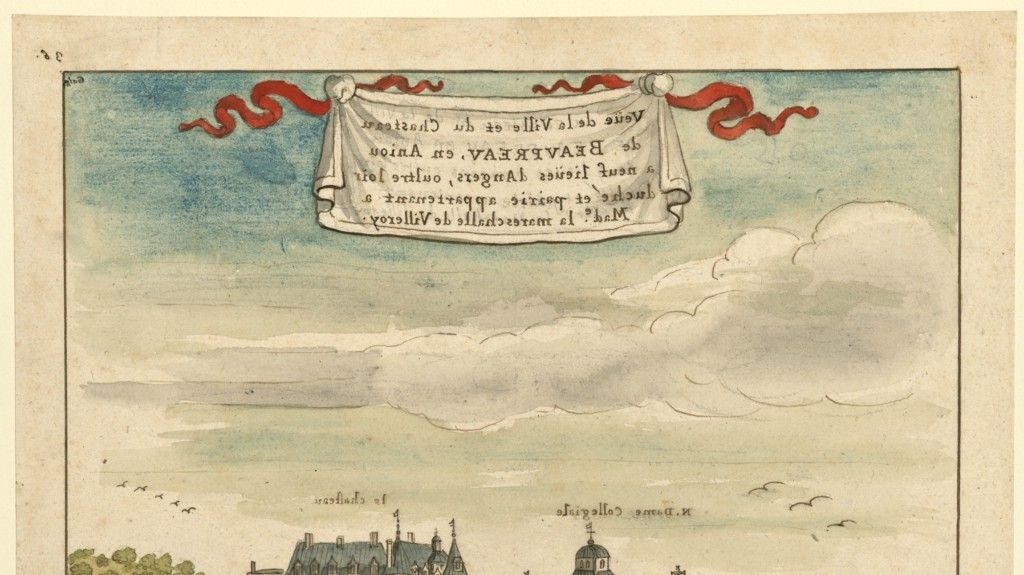 36.
Veüe de la Ville et du Chasteau
de BEAVPREAV, en Aniou
a neuf lieües dAngers, oultre loir
duché et pairie appartenant a
Mad.e la mareschalle de Villeroy.
le chasteau
N. Dame Collegiale